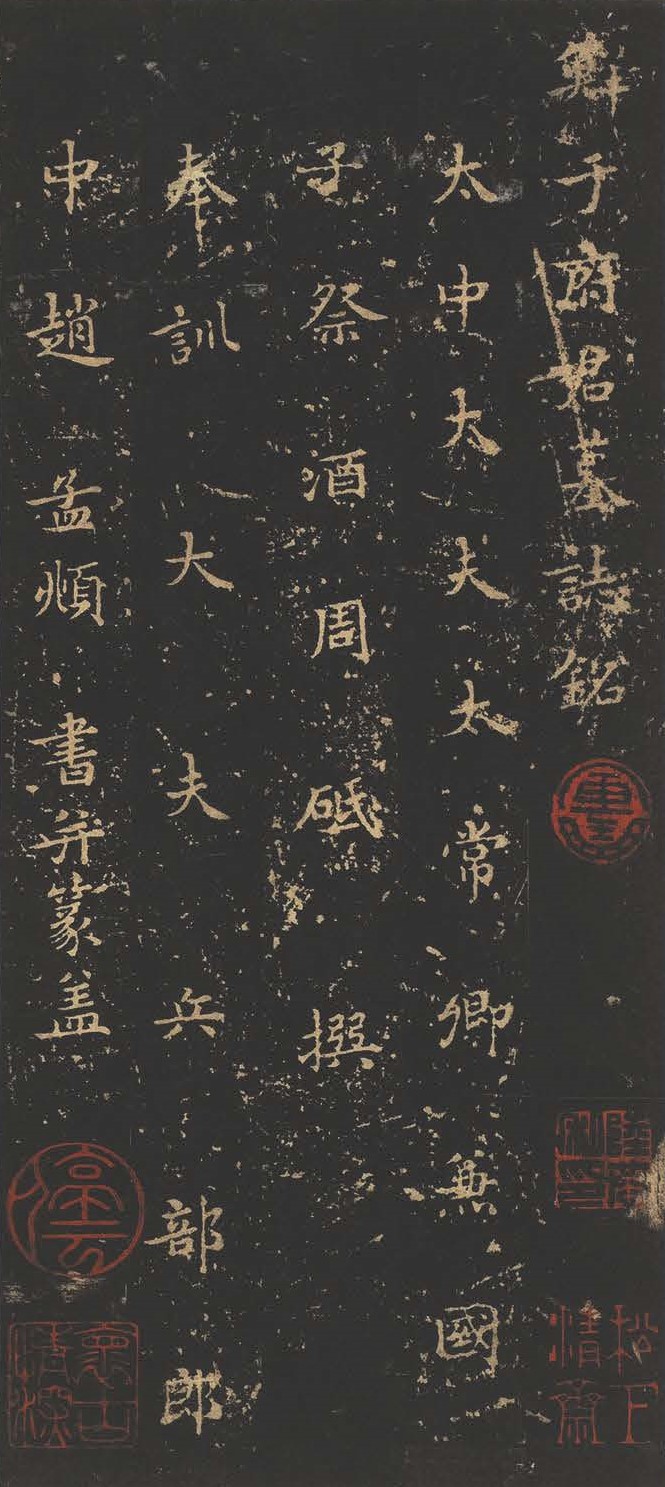 鮮于府君墓誌銘
太中大夫太常卿兼國
子祭酒周砥撰
奉訓大夫兵部郎
中趙孟頫書并篆盖
松下清齋
停雲